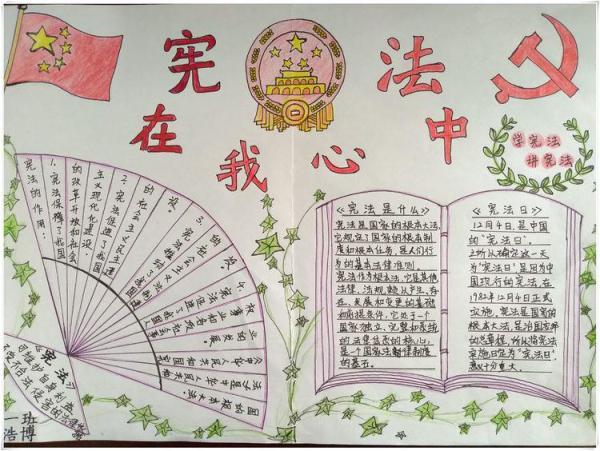 宪法
在我心中
学宪法
讲宪法
宪法的作用：
1. 宪法保障了我国
的改革开放和社会
主义现代化建设；
2. 宪法促进了我国
的社会主义民主建
设；
4. 宪法促进了我国人
权事业和各项社会事
业的发展。
《宪法》
《宪法是什么》
宪法是国家的根本大法，
它规定了国家的根本制
度和根本任务，是人们行
为的基本法律准则。
宪法作为根本法，它是其他
法律、法规赖以产生、存
在、发展和变更的基础
和前提条件，它处于一个
国家独立、完整和系统
的法律体系的核心，
是一个国家法制体制度
的基石。
《宪法日》
12月4日，是中国
的“宪法日”。
之所以确定这一天
为“宪法日”，是因为中
国现行的宪法，在
1982年12月4日正式
实施，宪法是国家的
根本大法，是治国安邦
的总章程，所以将宪法
实施日定为“宪法日”，
意义十分重大。
一班
浩博